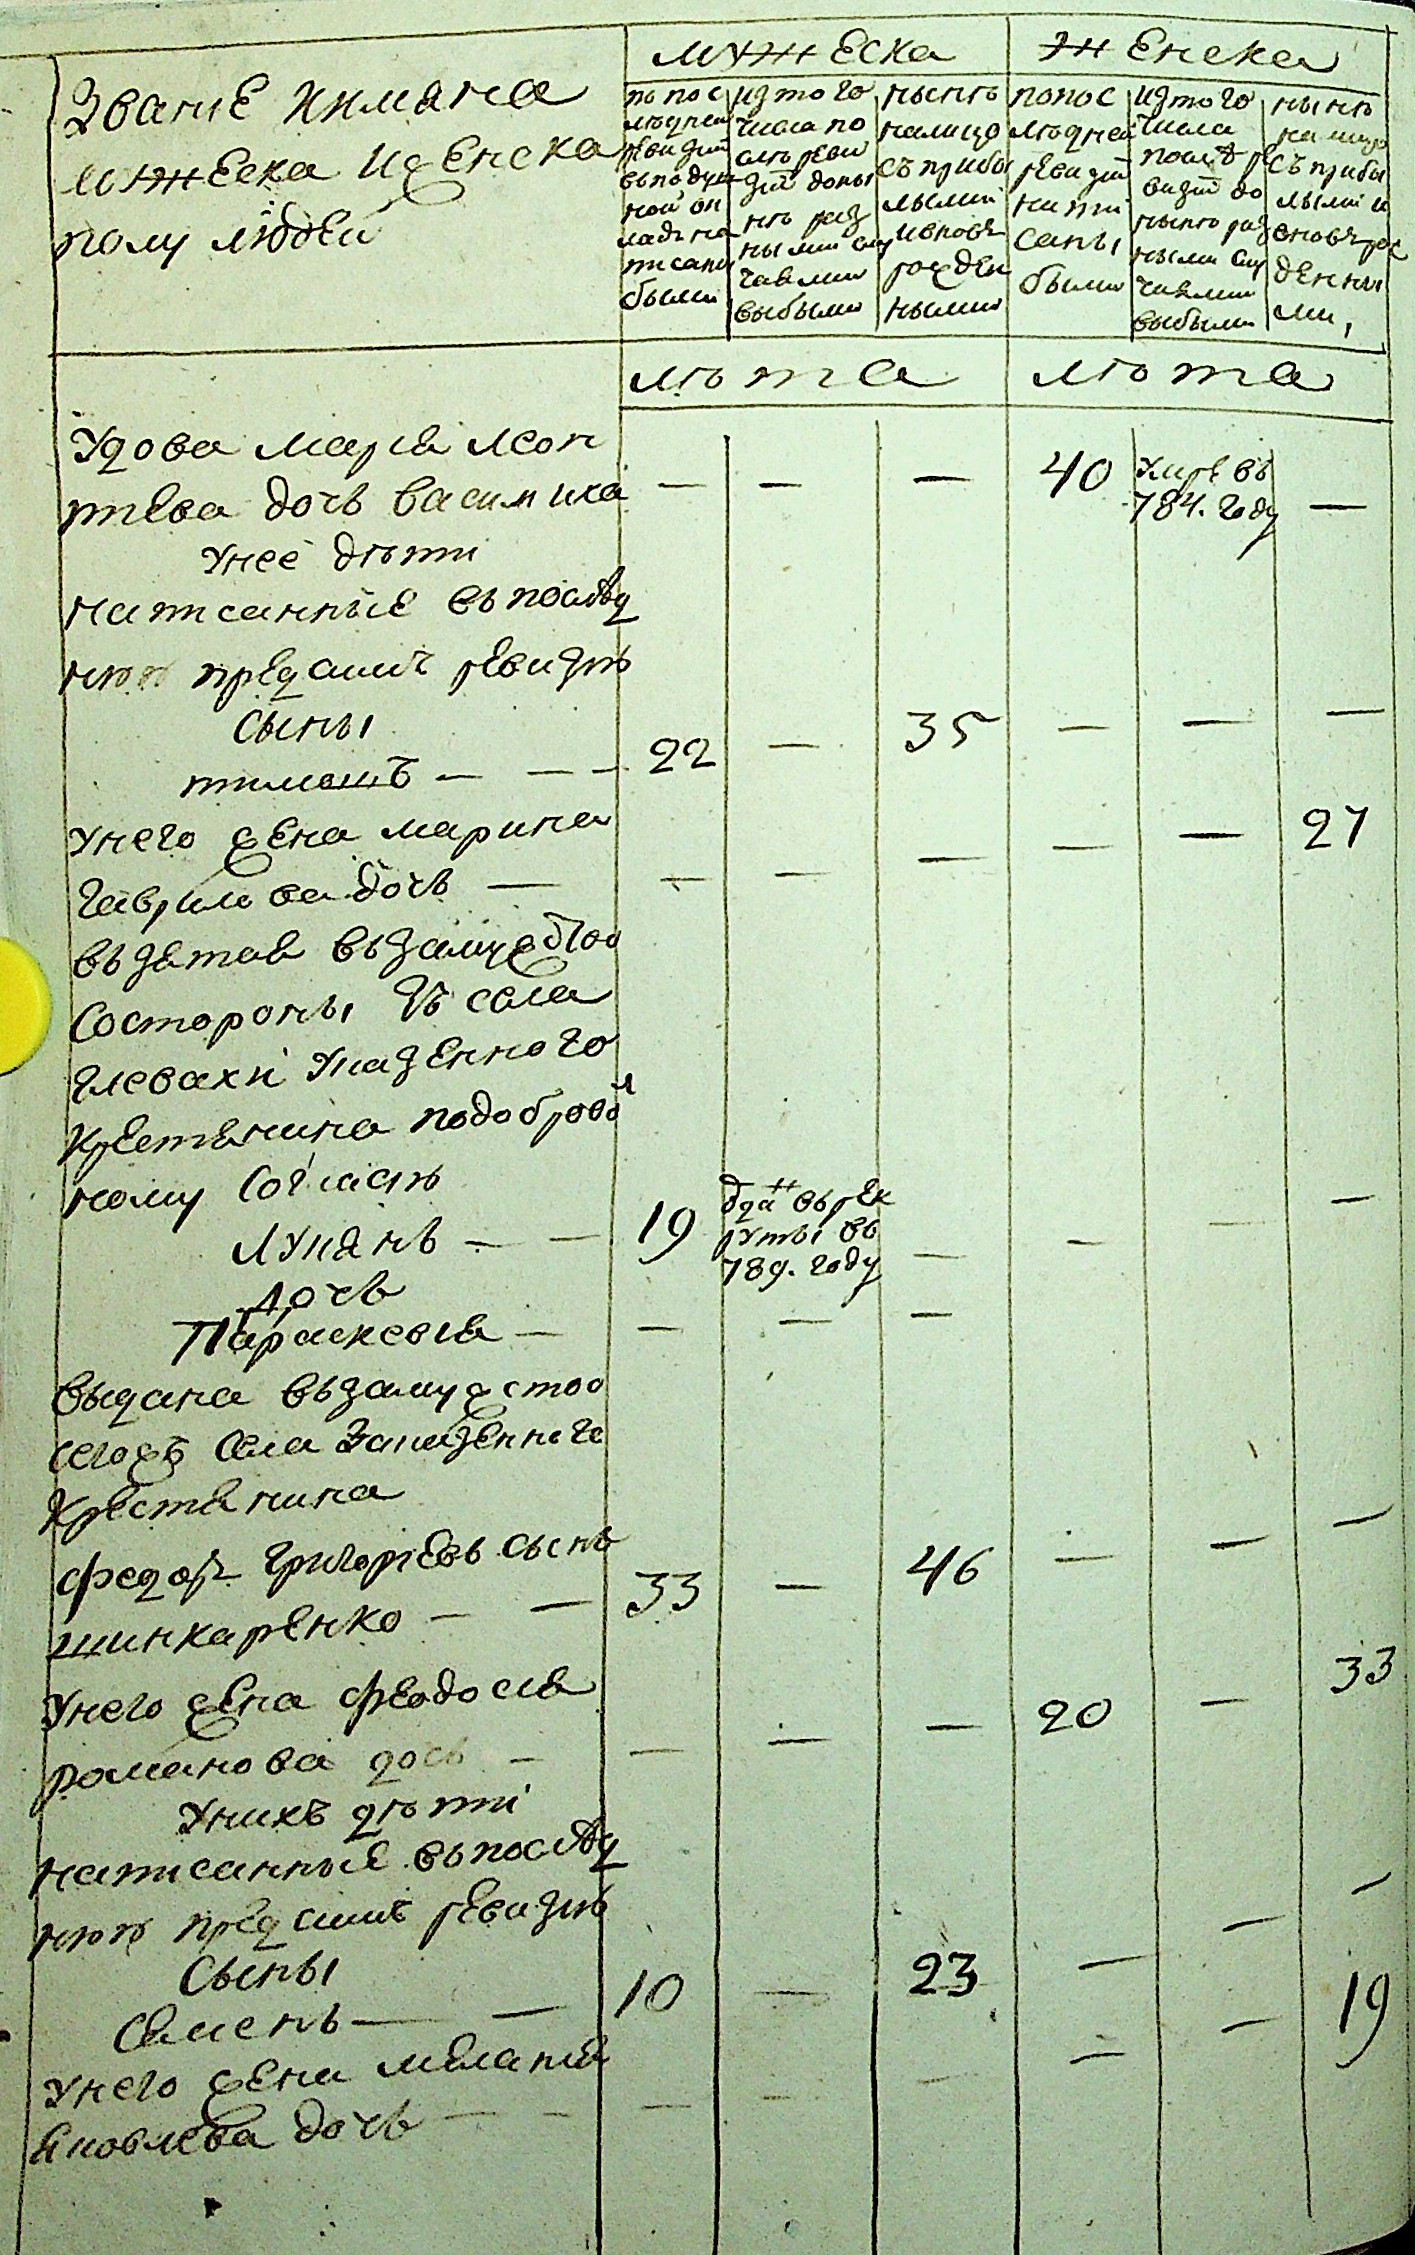 Званіе и имяна
мужеска и женска
полу людей
мужеска
женска
по пос
лѣдней
ревизіи
въ подуш
ной ок
ладъ на
писаны
были
из того
числа по
слѣ реви
зіи доны
нѣ раз
ными слу
чаями
выбыли
нынѣ
налицо
съ прибы
лыми
и новъ
рожден
ными
по пос
лѣдней
ревизіи
напи
саны
были
из того
числа
послѣ ре
визіи до
нынѣ раз
ными слу
чаями
выбыли
нынѣ
на лицо
съ прибы
лыми и
вновь рож
денны
ми,
лѣта
лѣта
Удова Марія Леон
тѣева дочь Василиха
— — — 40 умре въ 784. году —
У нее дѣти
написанные въ послѣд
нюю пред симъ ревизію
сыны
Тимошъ — — — 22 — 35 — — —
У него жена Марина
Гаврилова дочь — — — — — — 27
въ зятая въ замужство
со стороны изъ села
Глевахи Указенного
крестянина по доброволь
ному согласію
Лукянъ — — 19 Оданъ въ рек
руты въ
789. году — — — —
Дочь
Параскевія — — — —
выдана въ замужство
сегожъ села За казенного
крестянина
Федоръ Григоріевъ сынъ
Шинкаренко — — 33 — 46 — — —
У него жена Феодосія
Романова дочь — — — — 20 — 33
У нихъ дѣти
написанные въ послѣд
нюю пред симъ ревизію
Сыны
Семенъ — — 10 — 23 — — —
У него жена Меланія
Яковлева дочь — — — — — — — 19